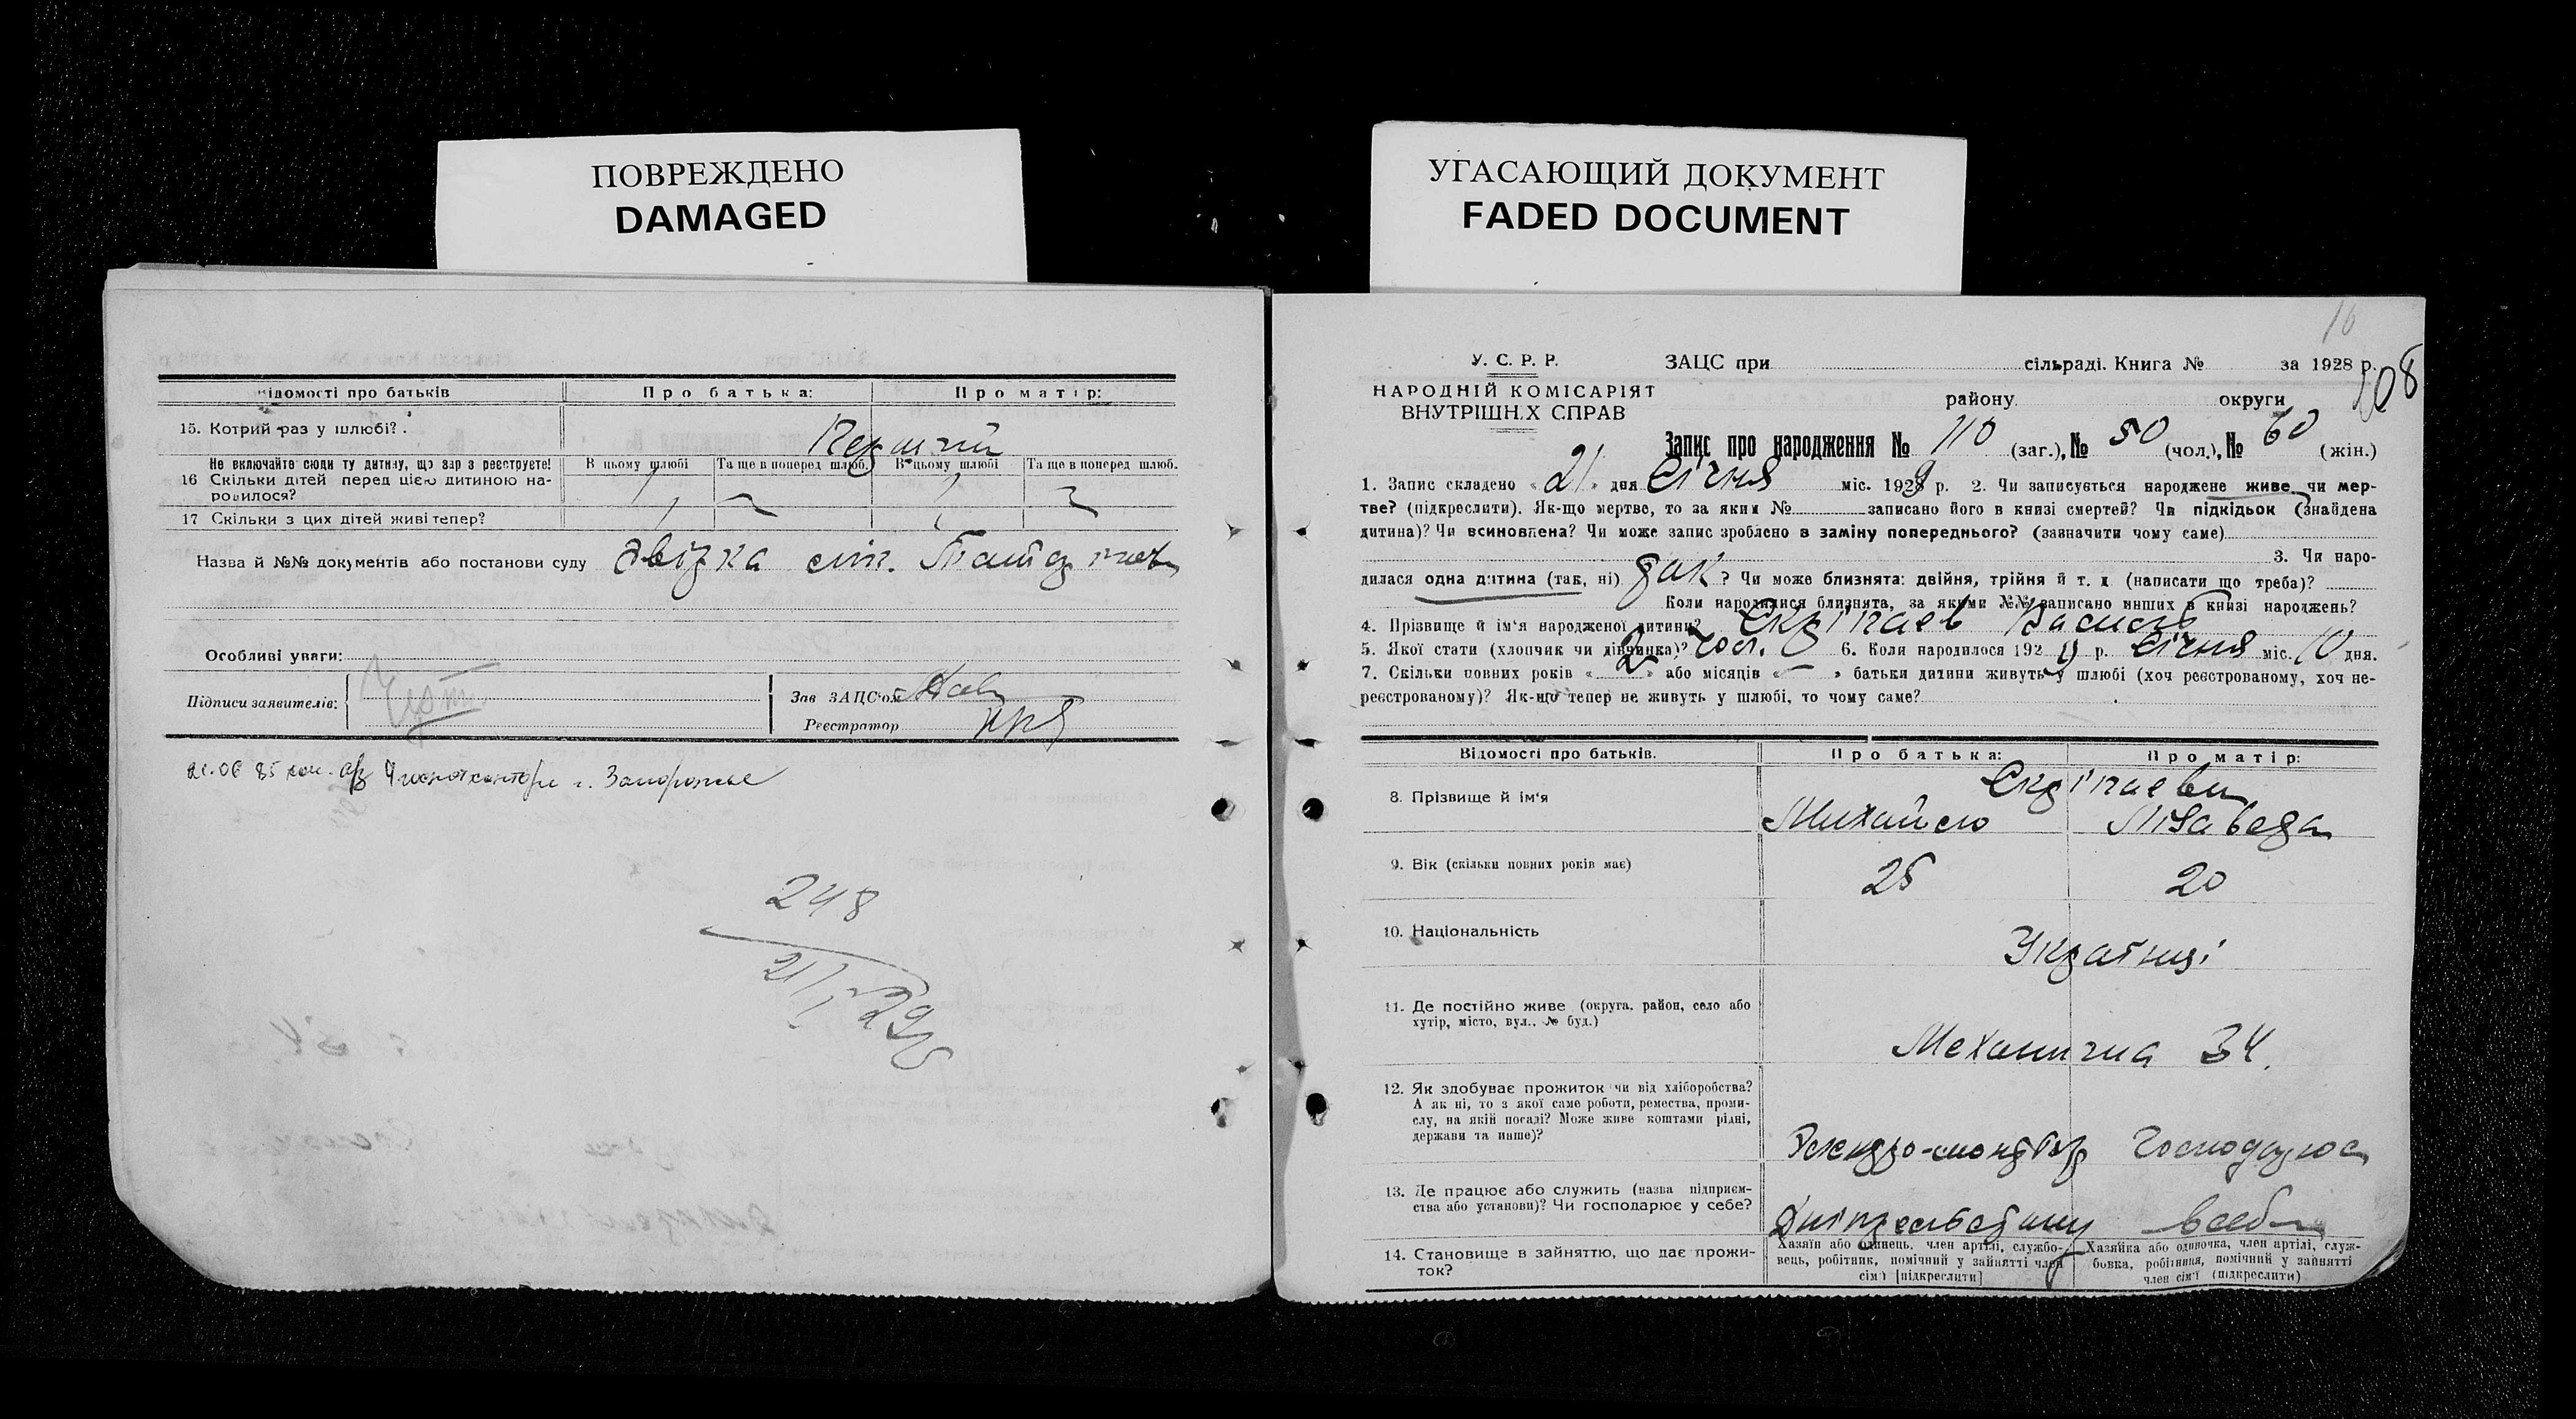 ПОВРЕЖДЕНО
DAMAGED
УГАСАЮЩИЙ ДОКУМЕНТ
FADED DOCUMENT
відомості про батьків
Про батька:
Про матір:
15. Котрий раз у шлюбі?
Перший
Не включайте сюди ту дитину, що зар з реєструєте!
В цьому шлюбі
Та ще в поперед шлюб.
В цьому шлюбі
Та ще в поперед шлюб.
16 Скільки дітей перед цією дитиною на-
родилося?
17 Скільки з цих дітей живі тепер?
Назва й №№ документів або постанови суду
Особливі уваги:
Підписи заявителів:
Зав ЗАЦС'ом
Реєстратор
г. Запорожье
248
21/I 29
16
У. С. Р. Р.
НАРОДНІЙ КОМІСАРІЯТ
ВНУТРІШН.Х СПРАВ
ЗАЦС при сільраді. Книга № за 1928 р.
108
району округи
Запис про народження № 110 (заг.), № 50 (чол.), № 60 (жін.)
1. Запис складено « 21 » дня Січня міс. 1929 р. 2. Чи записується народжене живе чи мер-
тве? (підкреслити). Як-що мертве, то за яким № записано його в книзі смертей? Чи підкідьок (знайдена
дитина)? Чи всиновлена? Чи може запис зроблено в заміну попереднього? (зазначити чому саме)
3. Чи наро-
дилася одна дитина (так, ні) так? Чи може близнята: двійня, трійня й т. д. (написати що треба)?
Коли народилися близнята, за якими №№ записано инших в книзі народжень?
4. Прізвище й ім'я народженої дитини? Скріпаев Василь
5. Якої стати (хлопчик чи дівчинка)? чол. 6. Коли народилося 1929 р. Січня міс. 10 дня.
7. Скільки повних років « 2 » або місяців « — » батьки дитини живуть у шлюбі (хоч реєстрованому, хоч не-
реєстрованому)? Як-що тепер не живуть у шлюбі, то чому саме?
Відомості про батьків.
Про батька:
Про матір:
8. Прізвище й ім'я
Скріпаеви
Михайло
Лізаведа
9. Вік (скільки повних років має)
25
20
10. Національність
Українці
11. Де постійно живе (округа, район, село або
хутір, місто, вул., № буд.)
Механична 34.
12. Як здобуває прожиток чи від хліборобства?
А як ні, то з якої саме роботи, ремества, проми-
слу, на якій посаді? Може живе коштами рідні,
держави та инше)?
13. Де працює або служить (назва підприєм-
ства або установи)? Чи господарює у себе?
Дніпрельстану
в себе
14. Становище в зайняттю, що дає прожи-
ток?
Хазяїн або одинець, член артілі, службо-
вець, робітник, помічний у зайнятті член
сім'ї [підкреслити]
Хазяйка або одиночка, член артілі, служ-
бовка, робітниця, помічний у зайнятті
член сім'ї (підкреслити)